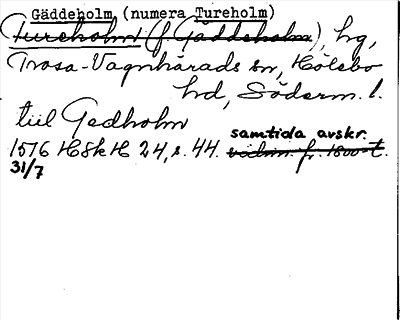 Gäddeholm (numera Tureholm)
Tureholm (f. Gäddeholm), hg,
Trosa-Vagnhärads sn, Hölebo
hd, Söderm. l.
till Gedholm
samtida avskr.
1576 HSkH 24, s. 44. vidim. fr. 1800-t.
31/7